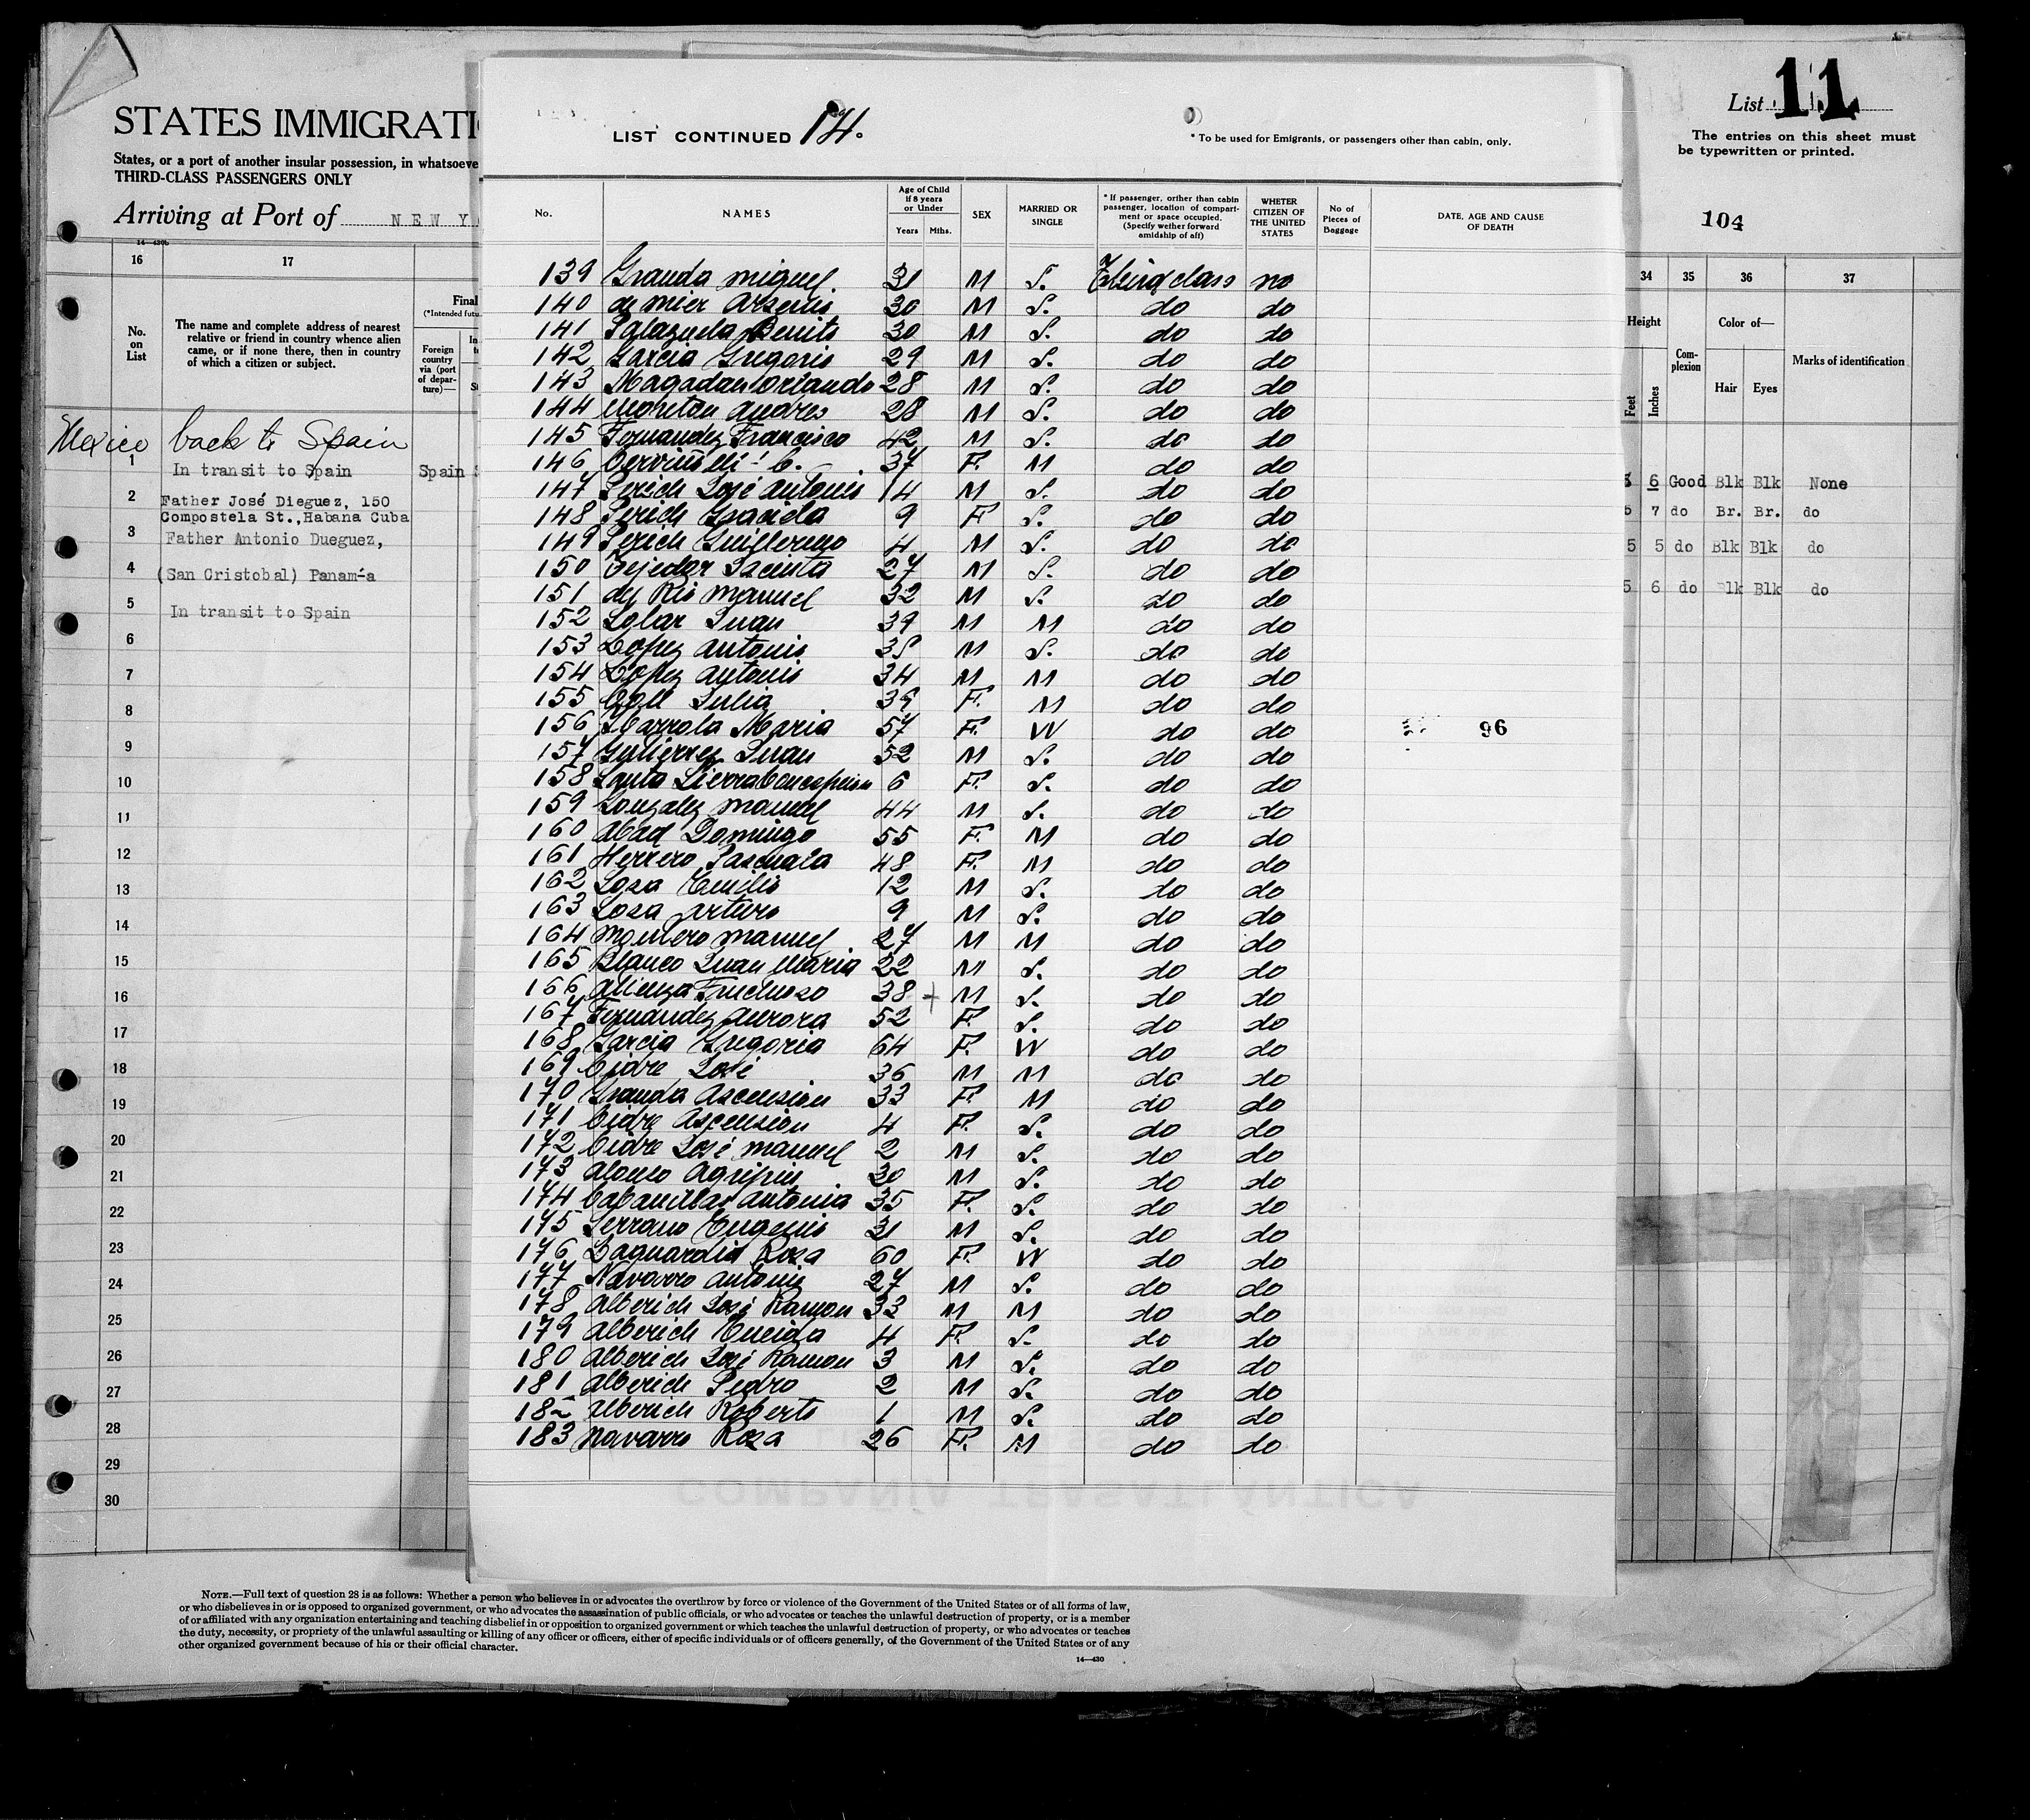 STATES IMMIGRATI
States, or a port of another insular possession, in whatsoeve
THIRD-CLASS PASSENGERS ONLY
Arriving at Port of NEW Y
14—430b
16 17
No. on List
The name and complete address of nearest relative or friend in country whence alien came, or if none there, then in country of which a citizen or subject.
Final
(*Intended futu
Foreign country via (port of departure)—
Mexico back to Spain
1 In transit to Spain Spain
2 Father José Dieguez, 150
Compostela St., Habana Cuba
3 Father Antonio Dueguez,
4 (San Cristobal) Panamá
5 In transit to Spain
6
7
8
9
10
11
12
13
14
15
16
17
18
19
20
21
22
23
24
25
26
27
28
29
30
LIST CONTINUED 14.
* To be used for Emigrants, or passengers other than cabin, only.
No.
NAMES
Age of Child if 8 years or Under
Years Mths.
SEX
MARRIED OR SINGLE
* If passenger, orither than cabin passenger, location of compartment or space occupied. (Specify wether forward amidship of aft)
WHETER CITIZEN OF THE UNITED STATES
No of Pieces of Baggage
DATE, AGE AND CAUSE OF DEATH
139 Granda Miguel. 31 M S. Third class no
140 de Mier Arsenio 30 M S. do do
141 Palazuelo Benito 30 M S. do do
142 Garcia Gregorio 29 M S. do do
143 Magadan Orlando 28 M S. do do
144 Andres 28 M S. do do
145 Fernandez Francisco 42 M S. do do
146 C. 37 F. M do do
147 Perich José Antonio 14 M S. do do
148 Perich Graciela 9 F. S. do do
149 Perich Guillermo 4 M S. do do
150 Tejedor Jacinto 27 M S. do do
151 del Rio Manuel 32 M S. do do
152 Solar Juan 39 M M do do
153 Lopez Antonio 35 M S. do do
154 Lopez Antonio 34 M M do do
155 Coll Julia 36 F. M do do
156 Ibarrola Maria 57 F. W do do 96
157 Gutierrez Juan 52 M S. do do
158 Santa Sierra Concepcion 6 F. S. do do
159 Gonzalez Manuel 44 M S. do do
160 Abad Domingo 55 F. M do do
161 Herrero Pascuala 48 F. M do do
162 Sosa Emilio 12 M S. do do
163 Sosa Arturo 9 M S. do do
164 Montero Manuel 27 M M do do
165 Blanco Juan Maria 22 M S. do do
166 Atienza Fructuoso 38 + M S. do do
167 Fernandez Aurora 52 F. S. do do
168 Garcia Gregoria 64 F. W do do
169 Cidre José 36 M M do do
170 Granda Ascension 33 F. M do do
171 Cidre Ascension 4 F. S. do do
172 Cidre José Manuel 2 M S. do do
173 Alonso Agripin 30 M S. do do
174 Cabanillas Antonia 35 F. S. do do
175 Serrano Eugenio 31 M S. do do
176 Laguardia Rosa 60 F. W do do
177 Navarro Antonio 27 M S. do do
178 Alberich José Ramon 33 M M do do
179 Alberich 4 F. S. do do
180 Alberich José Ramon 3 M S. do do
181 Alberich Pedro 2 M S. do do
182 Alberich Roberto 1 M S. do do
183 Navarro Rosa 26 F. M do do
List 11
The entries on this sheet must
be typewritten or printed.
104
34 35 36 37
Height
Feet Inches
Complexion
Color of—
Hair Eyes
Marks of identification
5 6 Good Blk Blk None
5 7 do Br. Br. do
5 5 do Blk Blk do
5 6 do Blk Blk do
NOTE.—Full text of question 28 is as follows: Whether a person who believes in or advocates the overthrow by force or violence of the Government of the United States or of all forms of law,
or who disbelieves in or is opposed to organized government, or who advocates the assassination of public officials, or who advocates or teaches the unlawful destruction of property, or is a member
of or affiliated with any organization entertaining and teaching disbelief in or opposition to organized government or which teaches the unlawful destruction of property, or who advocates or teaches
the duty, necessity, or propriety of the unlawful assaulting or killing of any officer or officers, either of specific individuals or of officers generally, of the Government of the United States or of any
other organized government because of his or their official character.
14—430